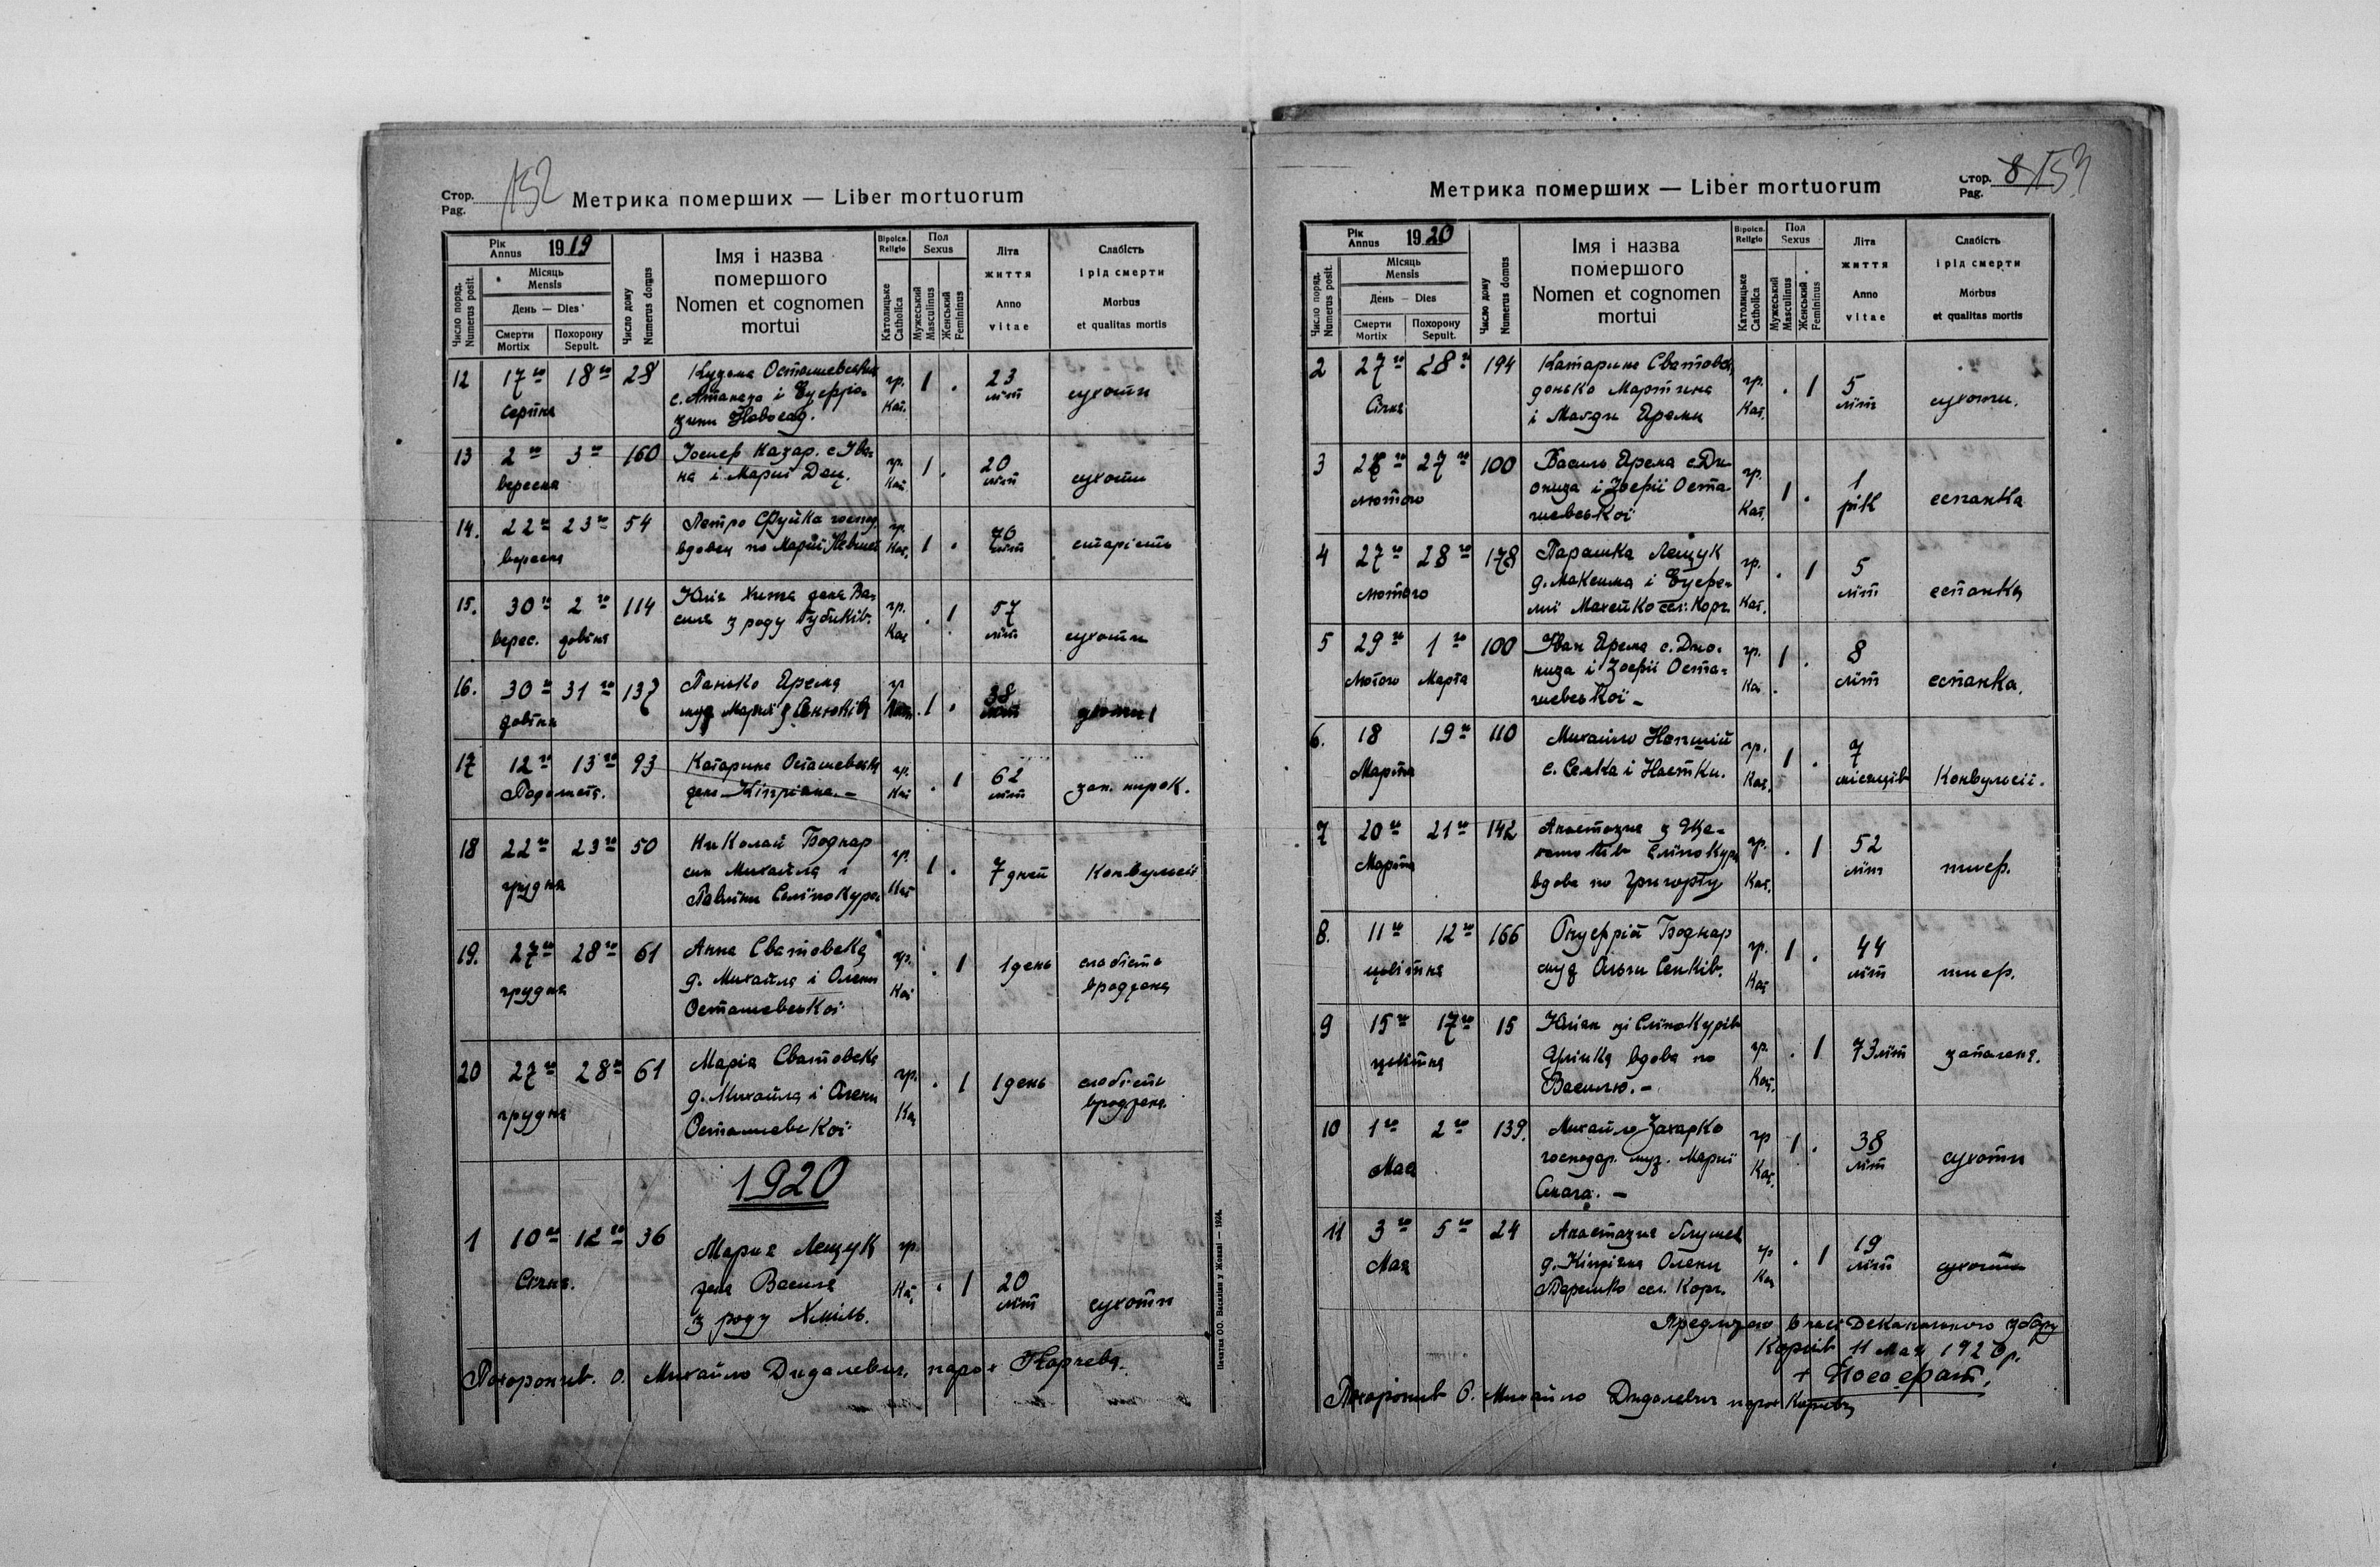 Стор.
Pag.
152
Метрика померших — Liber mortuorum
Рік
Annus
1919
Число поряд.
Numerus posit.
Місяць
Mensis
День — Dies
Смерти
Mortix
Похорону
Sepult.
Число дому
Numerus domus
Імя і назва
помершого
Nomen et cognomen
mortui
Віроісп.
Religio
Католицьке
Catholica
Пол
Sexus
Мужеський
Masculinus
Женський
Femininus
Літа
життя
Anno
vitae
Слабість
і рід смерти
Morbus
et qualitas mortis
12 17го 18го 28
серпня
с. Атаназа і Еуфро-
зини Новосад.
гр. Кат. 1 .
23 літ
сухоти
13 2го 3го 160
вересня
Йосиф Казар. с. Іва-
на і Марії Дац.
гр. Кат. 1 .
20 літ
сухоти
14. 22го 23го 54
вересня
Петро Фуйка господ.
вдовец по Марії
гр. Кат. 1 .
76 літ
старість
15. 30го 2го 114
верес. жовтня
Юлія Хита жена Ва-
силя з роду
гр. Кат . 1
57 літ
сухоти
16. 30го 31го 137
жовтня
Панько Ярема
муж Марії з Сенюків
гр Кат. 1 .
38 літ
сухоти
17 12го 13го 93
Падолиста.
Катарина Осташевська
жена Кіпріяна. –
гр. Кат . 1
62 літ
зап. нирок.
18 22го 23го 50
грудня
Николай Боднар
син Михайла і
Павлини Сліпокура
гр. Кат 1 .
7 днів
Конвульсії
19. 27го 28го 61
грудня
Анна Сватовска
д. Михайла і Олени
Осташевської
гр. Кат . 1
1 день
слабість
вроджена
20 27го 28го 61
грудня
Марія Сватовска
д. Михайла і Олени
Осташевскої
гр. Кат . 1
1 день
слабість
вроджена
1920
1 10го 12го 36
Січня.
Мария Лещук
жена Василя
з роду Хміль.
гр. Кат . 1
20 літ
сухоти
Похоронив. о. Михайло Дидалевич, парох Корчева.
Печатня ОО. Василіян у Жовкві — 1924.
Метрика померших — Liber mortuorum
Стор.
Pag.
8 153
Рік
Annus
1920
Число поряд.
Numerus posit.
Місяць
Mensis
День — Dies
Смерти
Mortix
Похорону
Sepult.
Число дому
Numerus domus
Імя і назва
помершого
Nomen et cognomen
mortui
Віроісп.
Religio
Католицьке
Catholica
Пол
Sexus
Мужеський
Masculinus
Женський
Femininus
Літа
життя
Anno
vitae
Слабість
і рід смерти
Morbus
et qualitas mortis
2 27го 28го 194
Січня
Катарина Сватовска
донька Мартина
і Магди Ярема
гр. Кат. . 1
5 літ
сухоти.
3 26го 27го 100
лютого
Василь Ярема с. Ди-
ониза і Зофії Оста-
шевської
гр. Кат. 1 .
1 рік
еспанка
4 27го 28го 178
лютого
Парашка Лещук
д. Максима і Еуфе-
мії Махейко сел. Корч.
гр. Кат. . 1
5 літ
еспанка
5 29го 1го 100
Лютого Марта
Іван Ярема с. Дио-
низа і Зофії Оста-
шевської –
гр. Кат. 1 .
8 літ
еспанка.
6. 18 19го 110
Марта
Михайло
с. Сенька і Настки.
гр. Кат. 1 .
7 місяців
Конвульсії.
7 20го 21го 142
Марта
Анастазия з
Сліпокура
вдова по Григорію
гр. Кат. . 1
52 літ
тиф.
8. 11го 12го 166
цвітня
Онуфрій Боднар
муж Ольги Сенків.
гр. Кат 1 .
44 літ
тиф.
9 15го 17го 15
цвітня
Юлія зі Сліпокурів
вдова по
Василю. –
гр. Кат. . 1
73 літ
запаленя.
10 1го 2го 139.
Мая
Михайло Захарко
господар. муж. Марії
гр Кат. 1 .
38 літ
сухоти
11 3го 5го 24
Мая
Анастазия
д. Кіпріяна Олени
сел. Корч.
гр Кат . 1
19 літ
сухоти
Предложено в часі Деканального
11 Мая 192
Похоронив О. Михайло Дидалевич парох Корчева